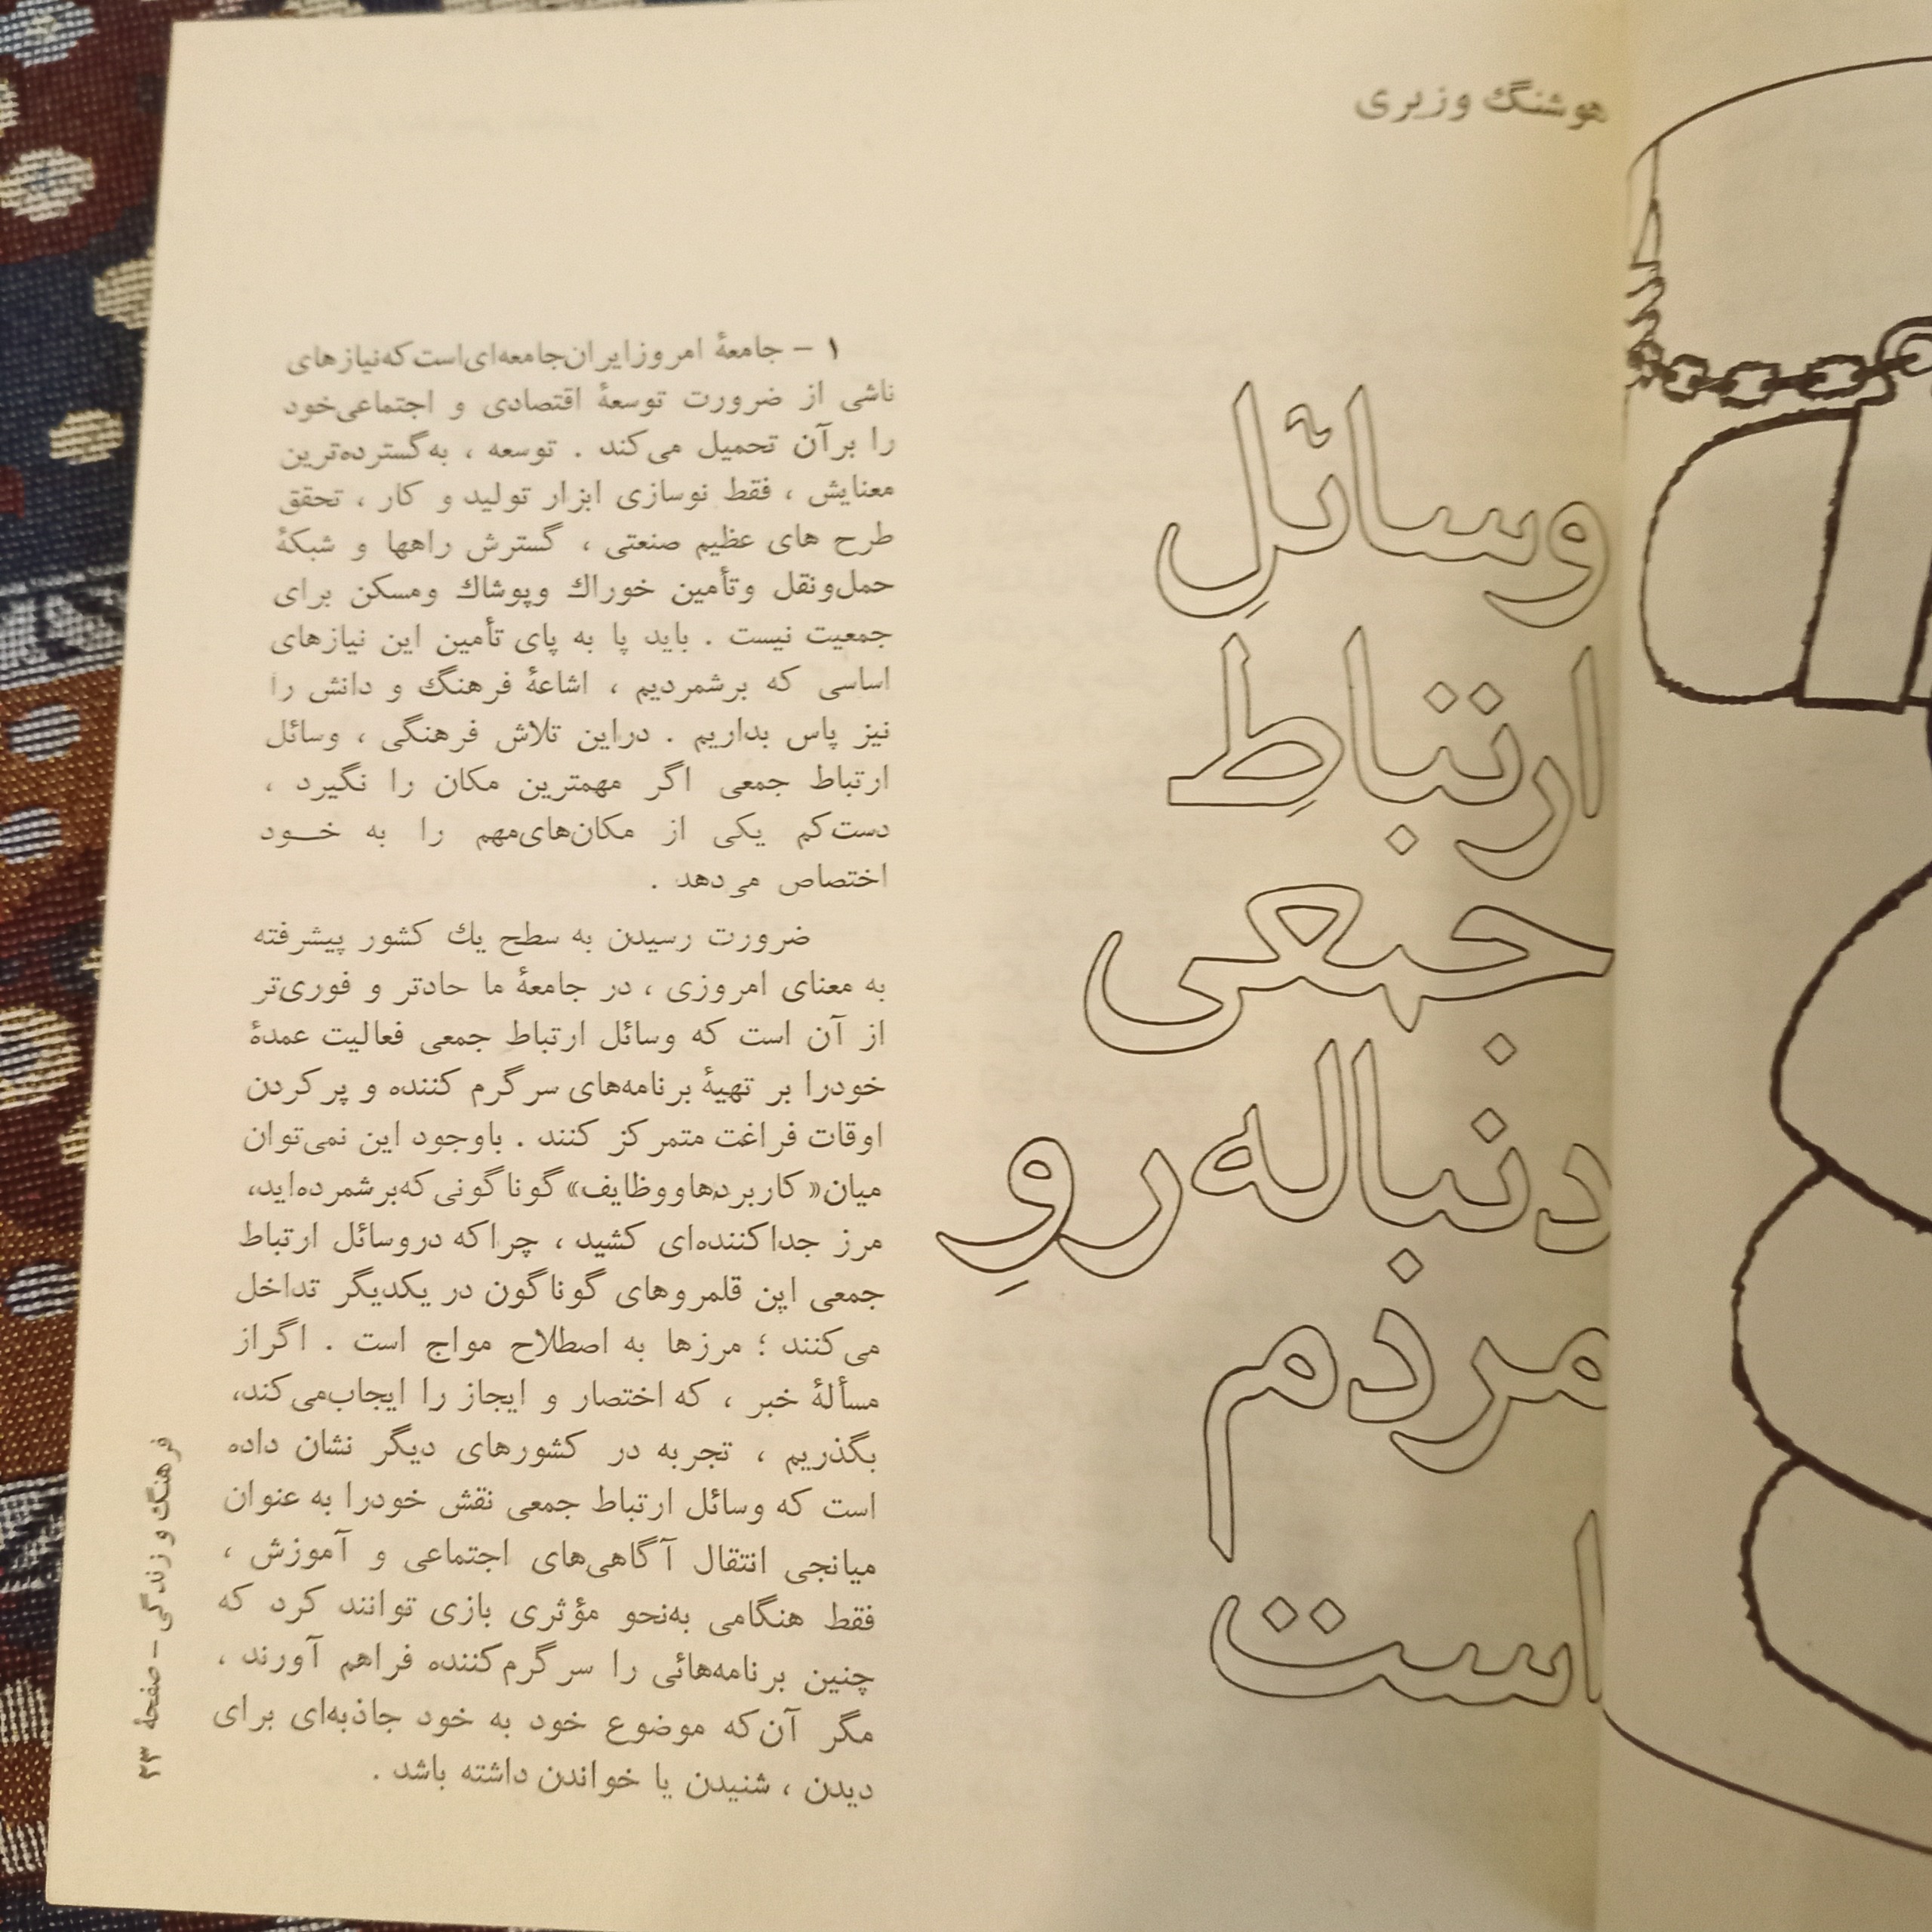 هوشنگ وزیری
وسائلِ
ارتباطِ
جمعی
دنباله‌روِ
مردم
است
۱ – جامعهٔ امروز ایران جامعه‌ای است که نیازهای
ناشی از ضرورت توسعهٔ اقتصادی و اجتماعی خود
را برآن تحمیل می‌کند . توسعه ، به گسترده‌ترین
معنایش ، فقط نوسازی ابزار تولید و کار ، تحقق
طرح های عظیم صنعتی ، گسترش راهها و شبکهٔ
حمل‌ونقل وتأمین خوراك وپوشاك ومسکن برای
جمعیت نیست . باید پا به پای تأمین این نیازهای
اساسی که برشمردیم ، اشاعهٔ فرهنگ و دانش را
نیز پاس بداریم . دراین تلاش فرهنگی ، وسائل
ارتباط جمعی اگر مهمترین مکان را نگیرد ،
دست‌کم یکی از مکان‌های‌مهم را به خــود
اختصاص می‌دهد .
ضرورت رسیدن به سطح یك کشور پیشرفته
به معنای امروزی ، در جامعهٔ ما حادتر و فوری‌تر
از آن است که وسائل ارتباط جمعی فعالیت عمدهٔ
خودرا بر تهیهٔ برنامه‌های سرگرم کننده و پرکردن
اوقات فراغت متمرکز کنند . باوجود این نمی‌توان
میان «کاربردها و وظایف» گوناگونی که برشمرده‌اید،
مرز جداکننده‌ای کشید ، چراکه دروسائل ارتباط
جمعی این قلمروهای گوناگون در یکدیگر تداخل
می‌کنند ؛ مرزها به اصطلاح مواج است . اگراز
مسألهٔ خبر ، که اختصار و ایجاز را ایجاب‌می‌کند،
بگذریم ، تجربه در کشورهای دیگر نشان داده
است که وسائل ارتباط جمعی نقش خودرا به عنوان
میانجی انتقال آگاهی‌های اجتماعی و آموزش ،
فقط هنگامی به‌نحو مؤثری بازی توانند کرد که
چنین برنامه‌هائی را سرگرم‌کننده فراهم آورند ،
مگر آن‌که موضوع خود به خود جاذبه‌ای برای
دیدن ، شنیدن یا خواندن داشته باشد .
فرهنگ و زندگی – صفحهٔ ۲۳